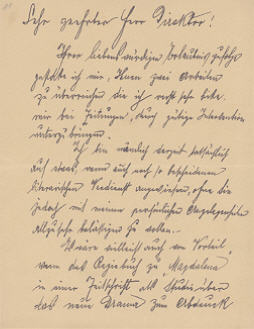 Sehr geehrter Herr Direktor!
Ihrer liebenswürdigen Erlaubnis zufolge
gestatte ich mir, Ihnen zwei Arbeiten
zu überreichen die ich recht sehr bitte
mir bei Zeitungen, durch gütige Intervention
unterzubringen.
Ich bin nämlich derzeit tatsächlich
auf etwas, wenn auch noch so bescheidenen
literarischen Verdienst angewiesen, ohne Sie
jedoch mit meinen persönlichen Angelegenheiten
allzusehr belästigen zu wollen.
Wäre vielleicht auch von Vorteil,
wenn das Regiebuch zu "Magdalena"
in einer Zeitschrift als Studie über
das neue Drama zum Abdruck